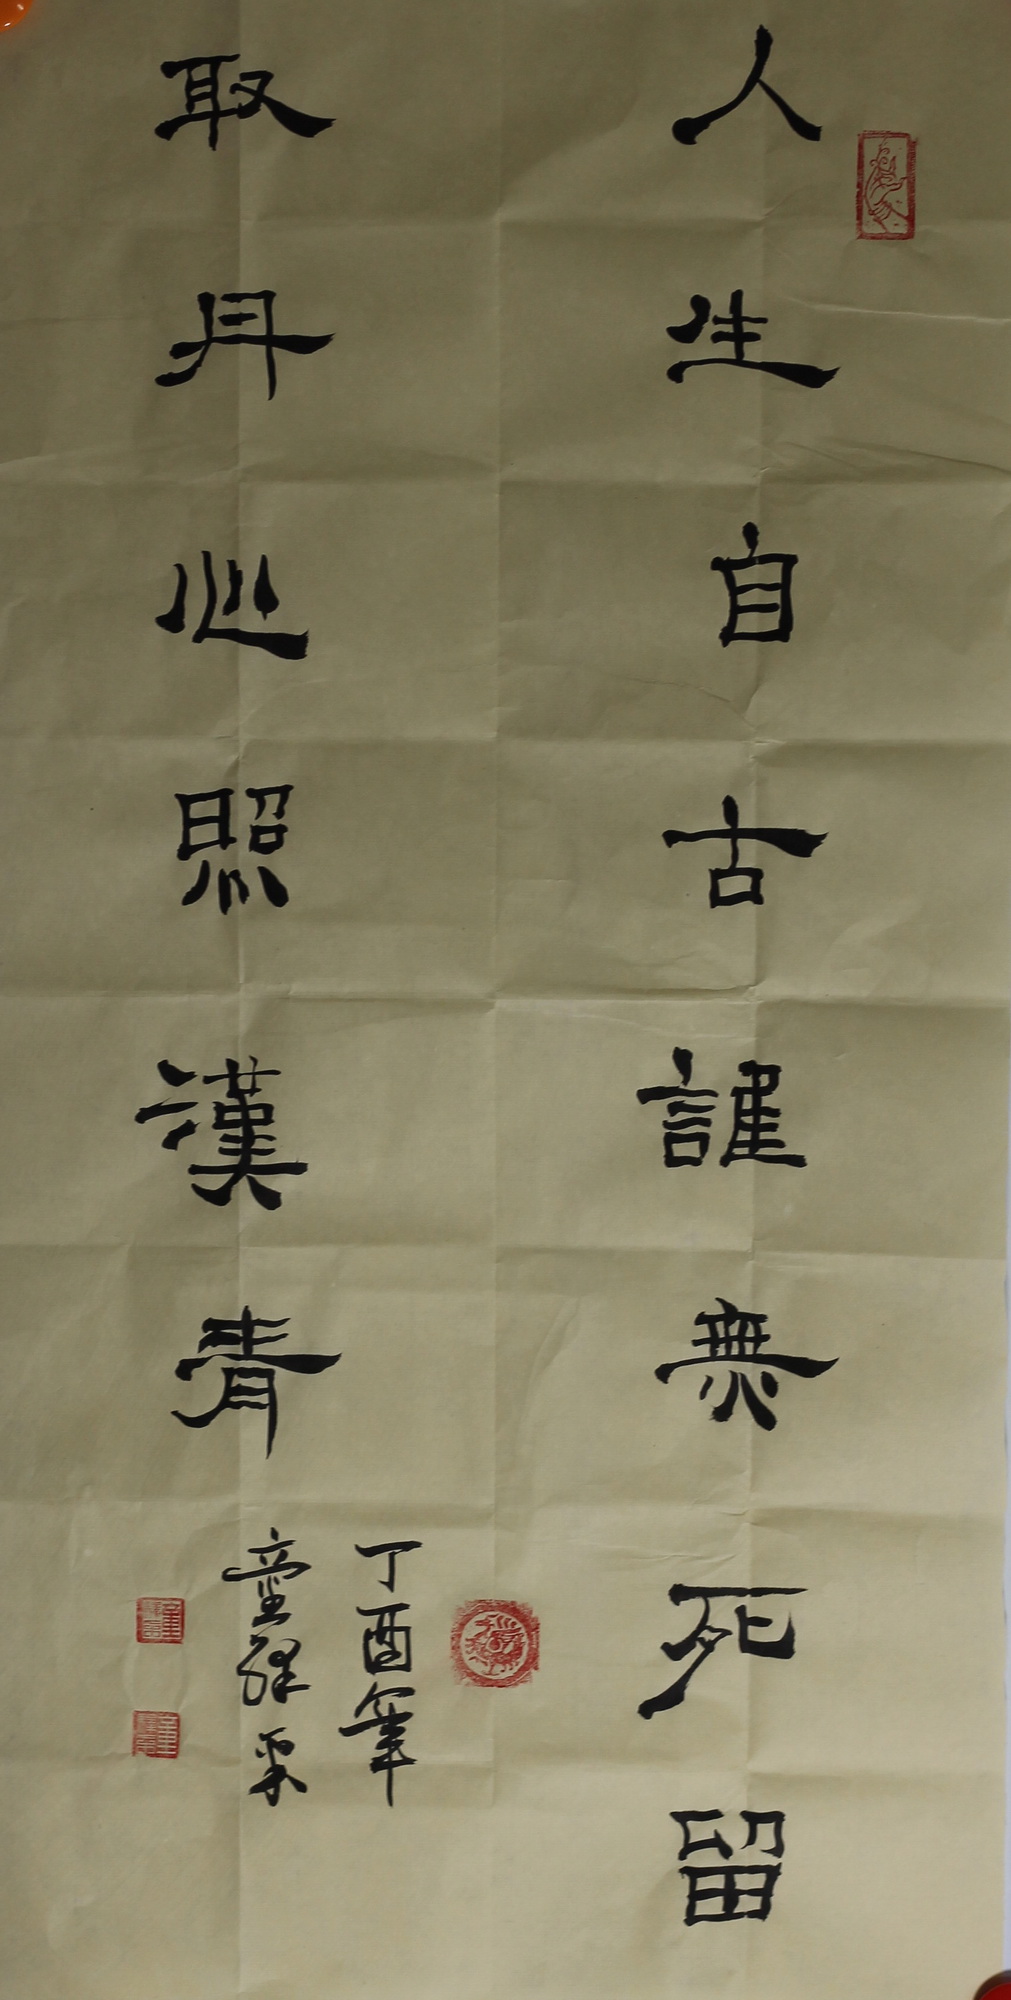 人生自古誰無死留
取丹心照漢青
丁酉年
童